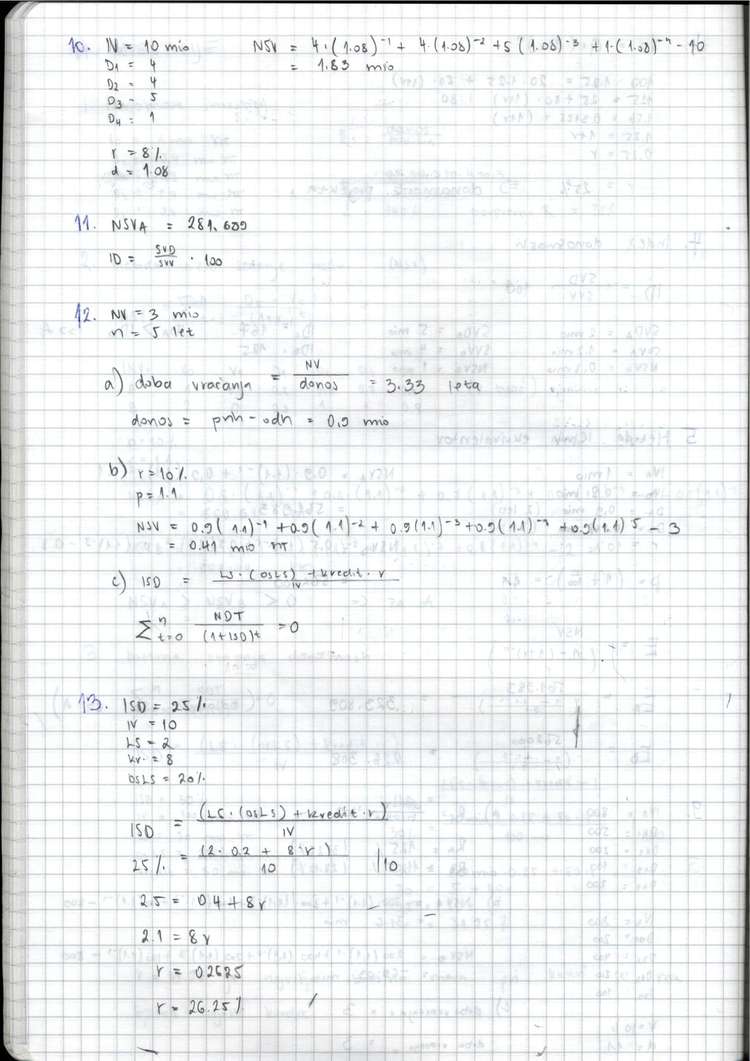 10. IV = 10 mio NSV = 4·(1.08)⁻¹ + 4·(1.08)⁻² + 5(1.08)⁻³ + 1·(1.08)⁻⁴ - 10
D1 = 4 = 1.83 mio
D2 = 4
D3 = 5
D4 = 1
r = 8%
d = 1.08
11. NSVA = 281.609
ID = SVD/SVV · 100
12. NV = 3 mio
n = 5 let
a) doba vračanja = NV/donos = 3.33 leta
donos = prih - odh = 0,9 mio
b) r = 10%
p = 1.1
NSV = 0.9(1.1)⁻¹ + 0.9(1.1)⁻² + 0.9(1.1)⁻³ + 0.9(1.1)⁻⁴ + 0.9(1.1)⁵ - 3
= 0.41 mio
c) ISD = LS·(OSLS) + kredit·r / IV
∑ⁿt=0 NDT/(1+ISD)t = 0
13. ISD = 25%
IV = 10
LS = 2
kr. = 8
OSLS = 20%
ISD = (LS·(OSLS) + kredit·r) / IV
25% = (2·0.2 + 8·r) / 10 |10
2.5 = 0.4 + 8r
2.1 = 8r
r = 0.2625
r = 26.25%